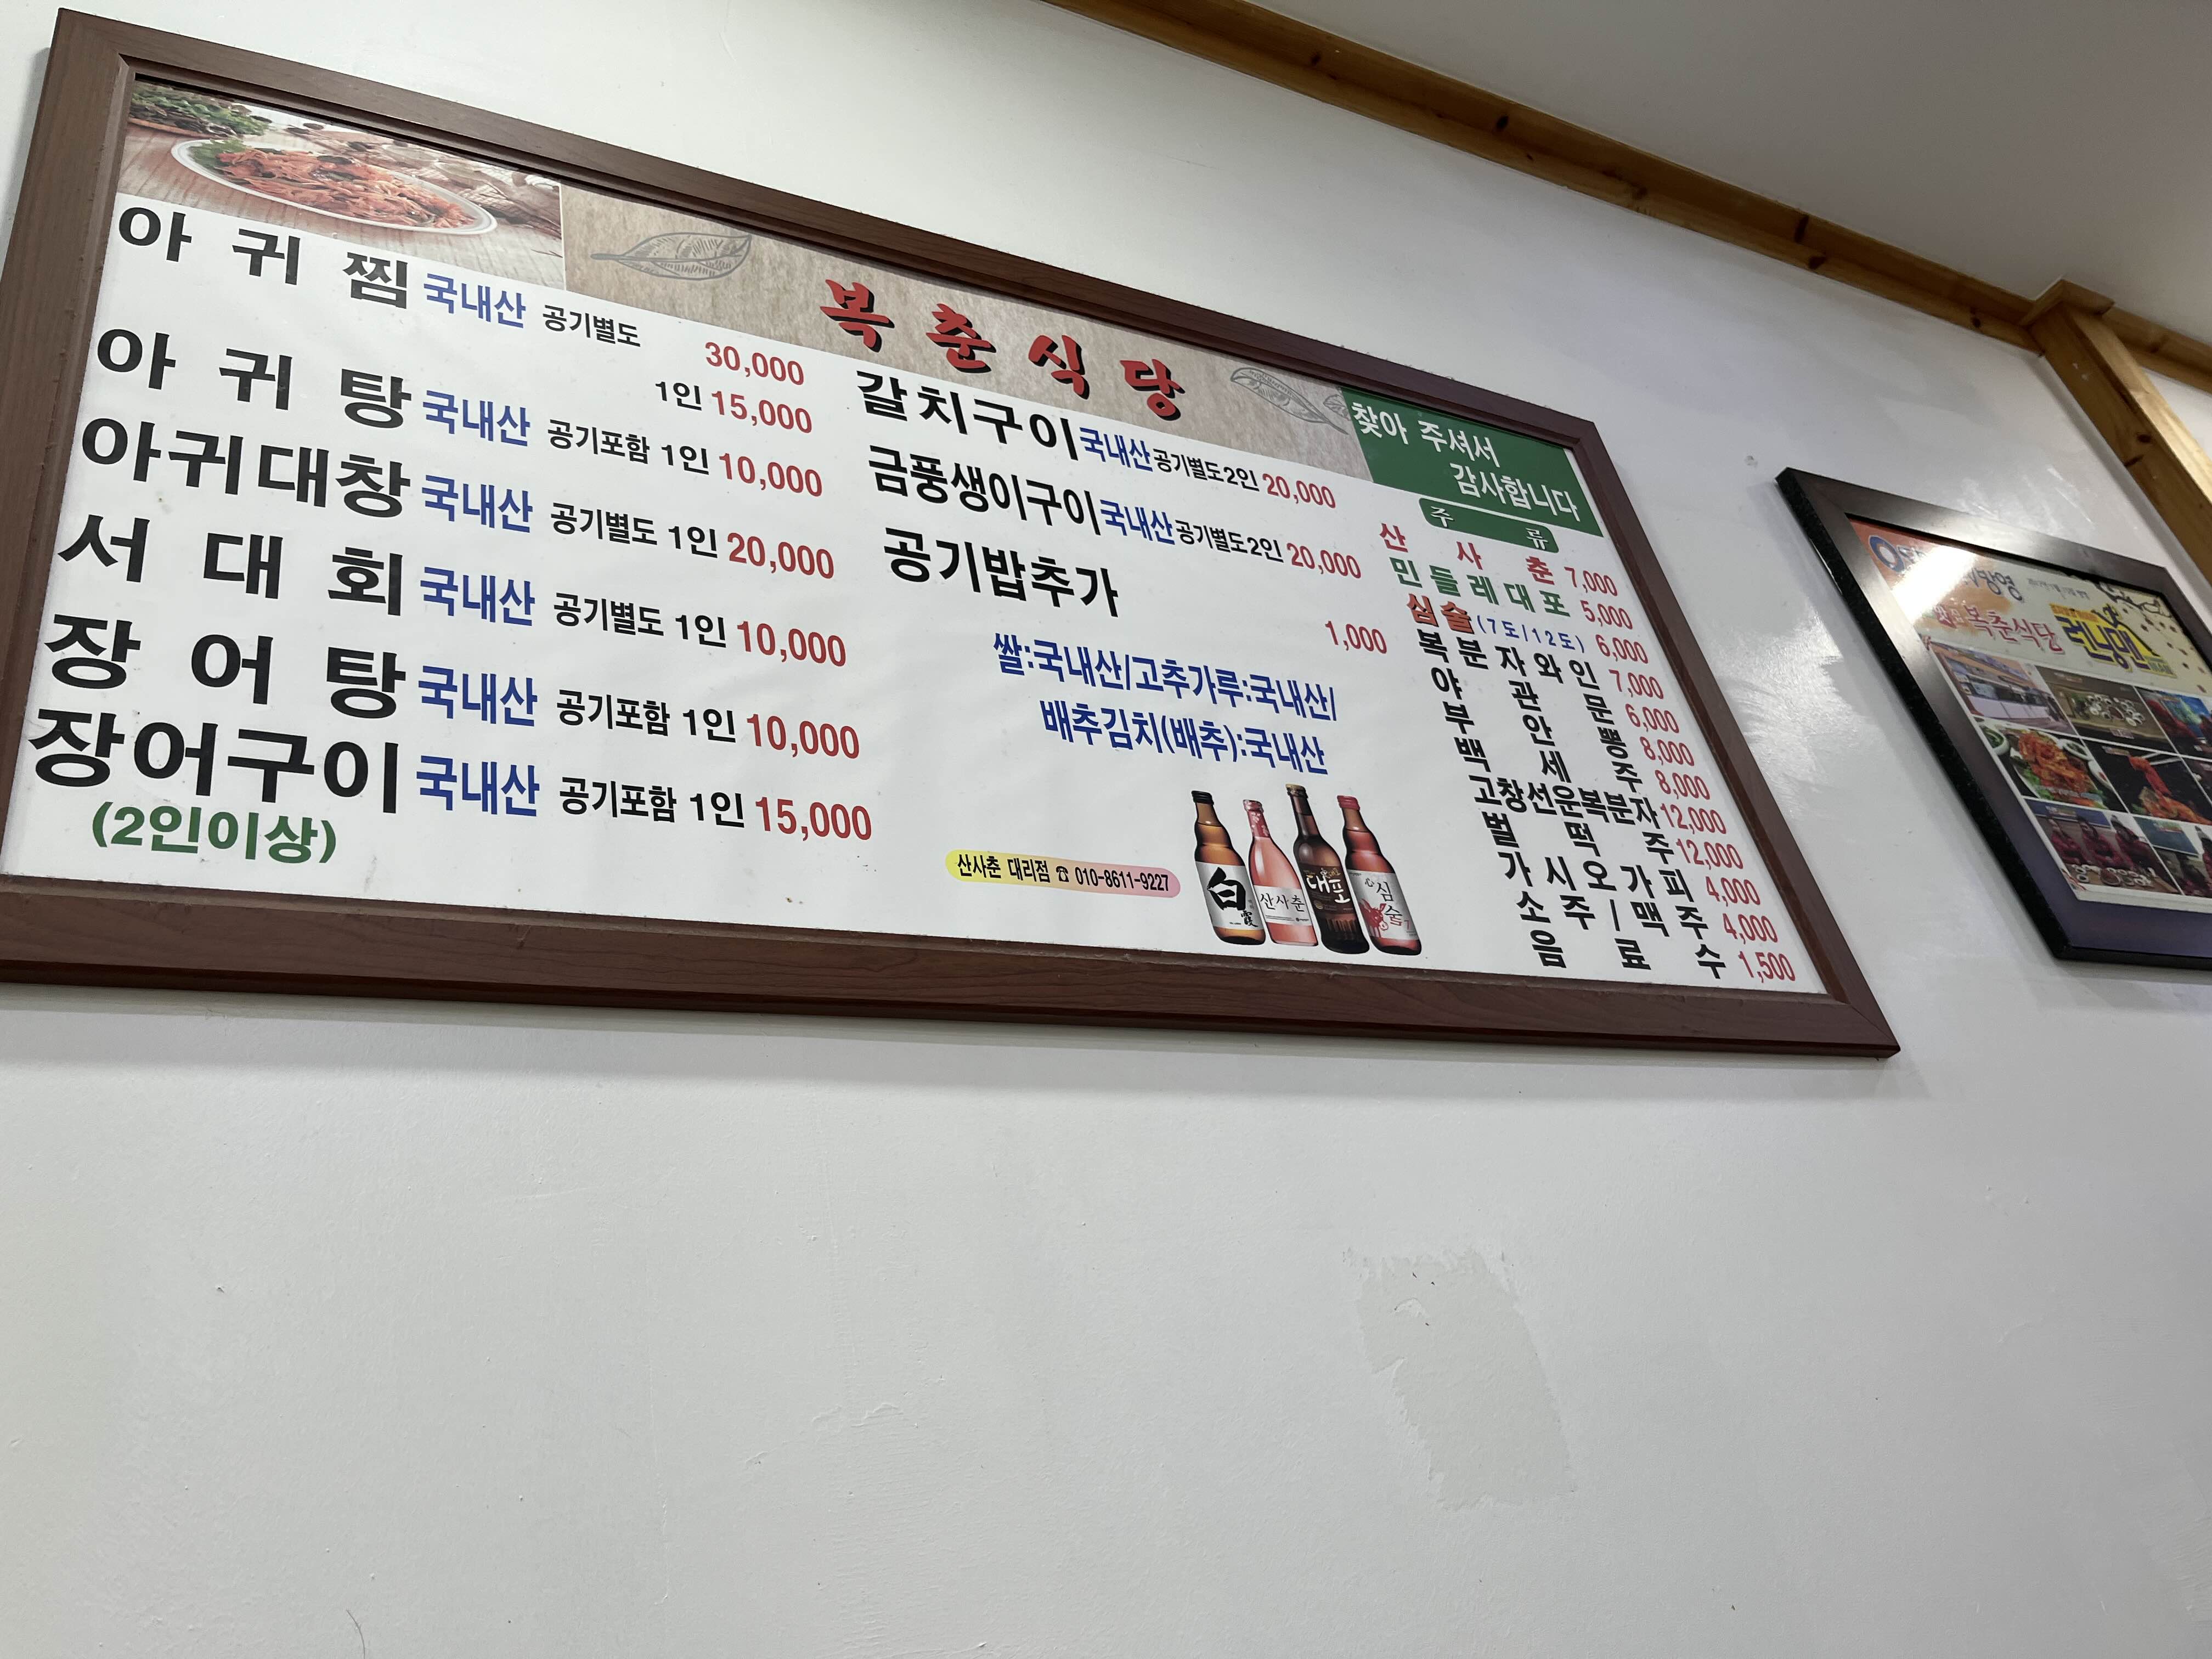 복춘식당
아귀찜 국내산 공기별도 30,000
1인 15,000
아귀탕 국내산 공기포함 1인 10,000
아귀대창 국내산 공기별도 1인 20,000
서대회 국내산 공기별도 1인 10,000
장어탕 국내산 공기포함 1인 10,000
장어구이 국내산 공기포함 1인 15,000
(2인이상)
갈치구이 국내산 공기별도 2인 20,000
금풍생이구이 국내산 공기별도 2인 20,000
공기밥추가 1,000
쌀:국내산/고추가루:국내산/
배추김치(배추):국내산
산사춘 대리점 ☎ 010-8611-9227
白霞
산사춘
대포
심술7
찾아 주셔서
감사합니다
주류
산사춘 7,000
민들레대포 5,000
심술(7도/12도) 6,000
복분자와인 7,000
야관문 6,000
부안뽕 8,000
백세주 8,000
고창선운복분자 12,000
벌떡주 12,000
가시오가피 4,000
소주/맥주 4,000
음료수 1,500
방영
복춘식당
런닝맨